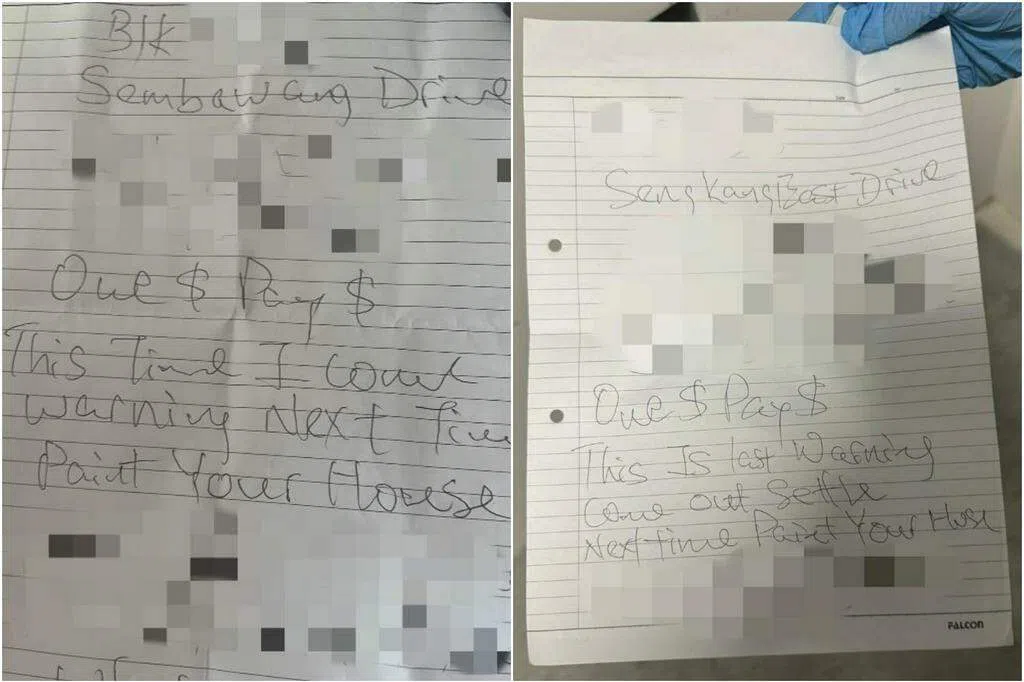 Blk
Sembawang Drive
t
Owe $ Pay $
This Time I come
Warning Next Time
Paint Your House
Sengkang East Drive
Owe $ Pay $
This Is last Warning
Come out Settle
Next time Paint Your House
FALCON